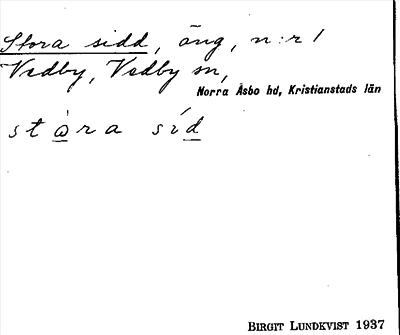 Stora sidd, äng, n:r 1
Vedby, Vedby sn,
Norra Åsbo hd, Kristianstads län
stὰra síd
BIRGIT LUNDKVIST 1937